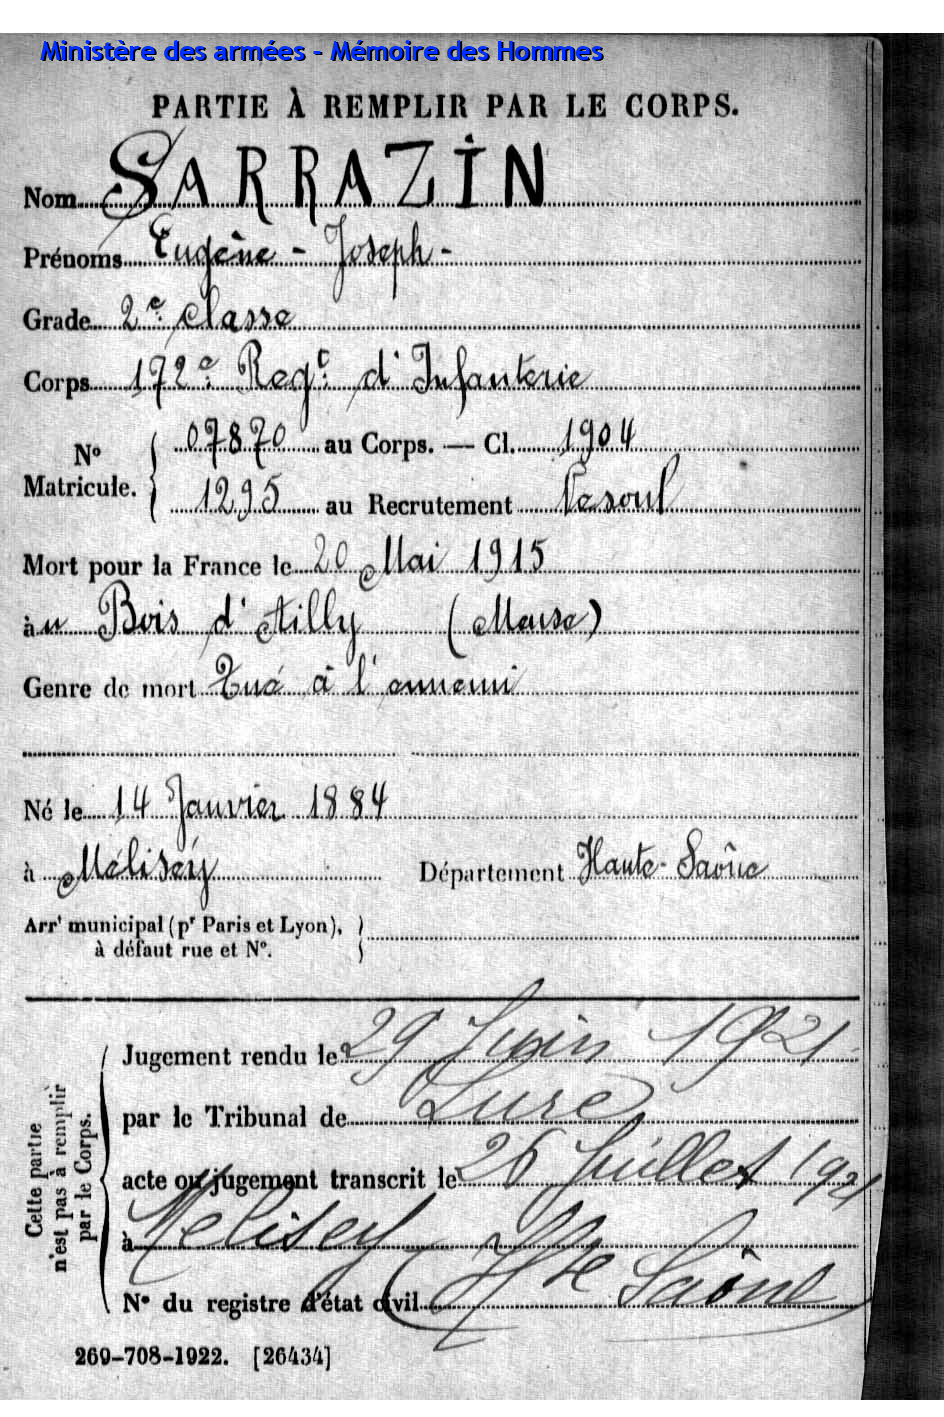 Ministère des armées - Mémoire des Hommes
PARTIE À REMPLIR PAR LE CORPS.
Nom SARRAZIN
Prénoms Eugène - Joseph -
Grade 2e classe
Corps 172e Regt d'Infanterie
No Matricule. 07870 au Corps. — Cl. 1904
1295 au Recrutement Vesoul
Mort pour la France le 20 Mai 1915
àu Bois d'Ailly (Meuse)
Genre de mort Tué à l'ennemi
Né le 14 Janvier 1884
à Mélisey Département Haute-Saône
Arrt municipal (pr Paris et Lyon),
à défaut rue et No.
Cette partie
n'est pas à remplir
par le Corps.
Jugement rendu le 29 Juin 1921
par le Tribunal de Lure
acte ou jugement transcrit le 26 Juillet 1921
à Melisey Hte Saône
No du registre d'état civil
269-708-1922. [26434]